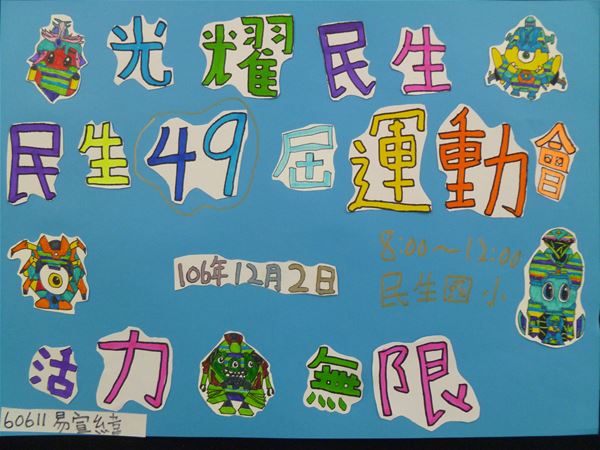 光耀民生
民生49屆運動會
8:00~12:00
106年12月2日
民生國小
活力無限
60611易宣緯